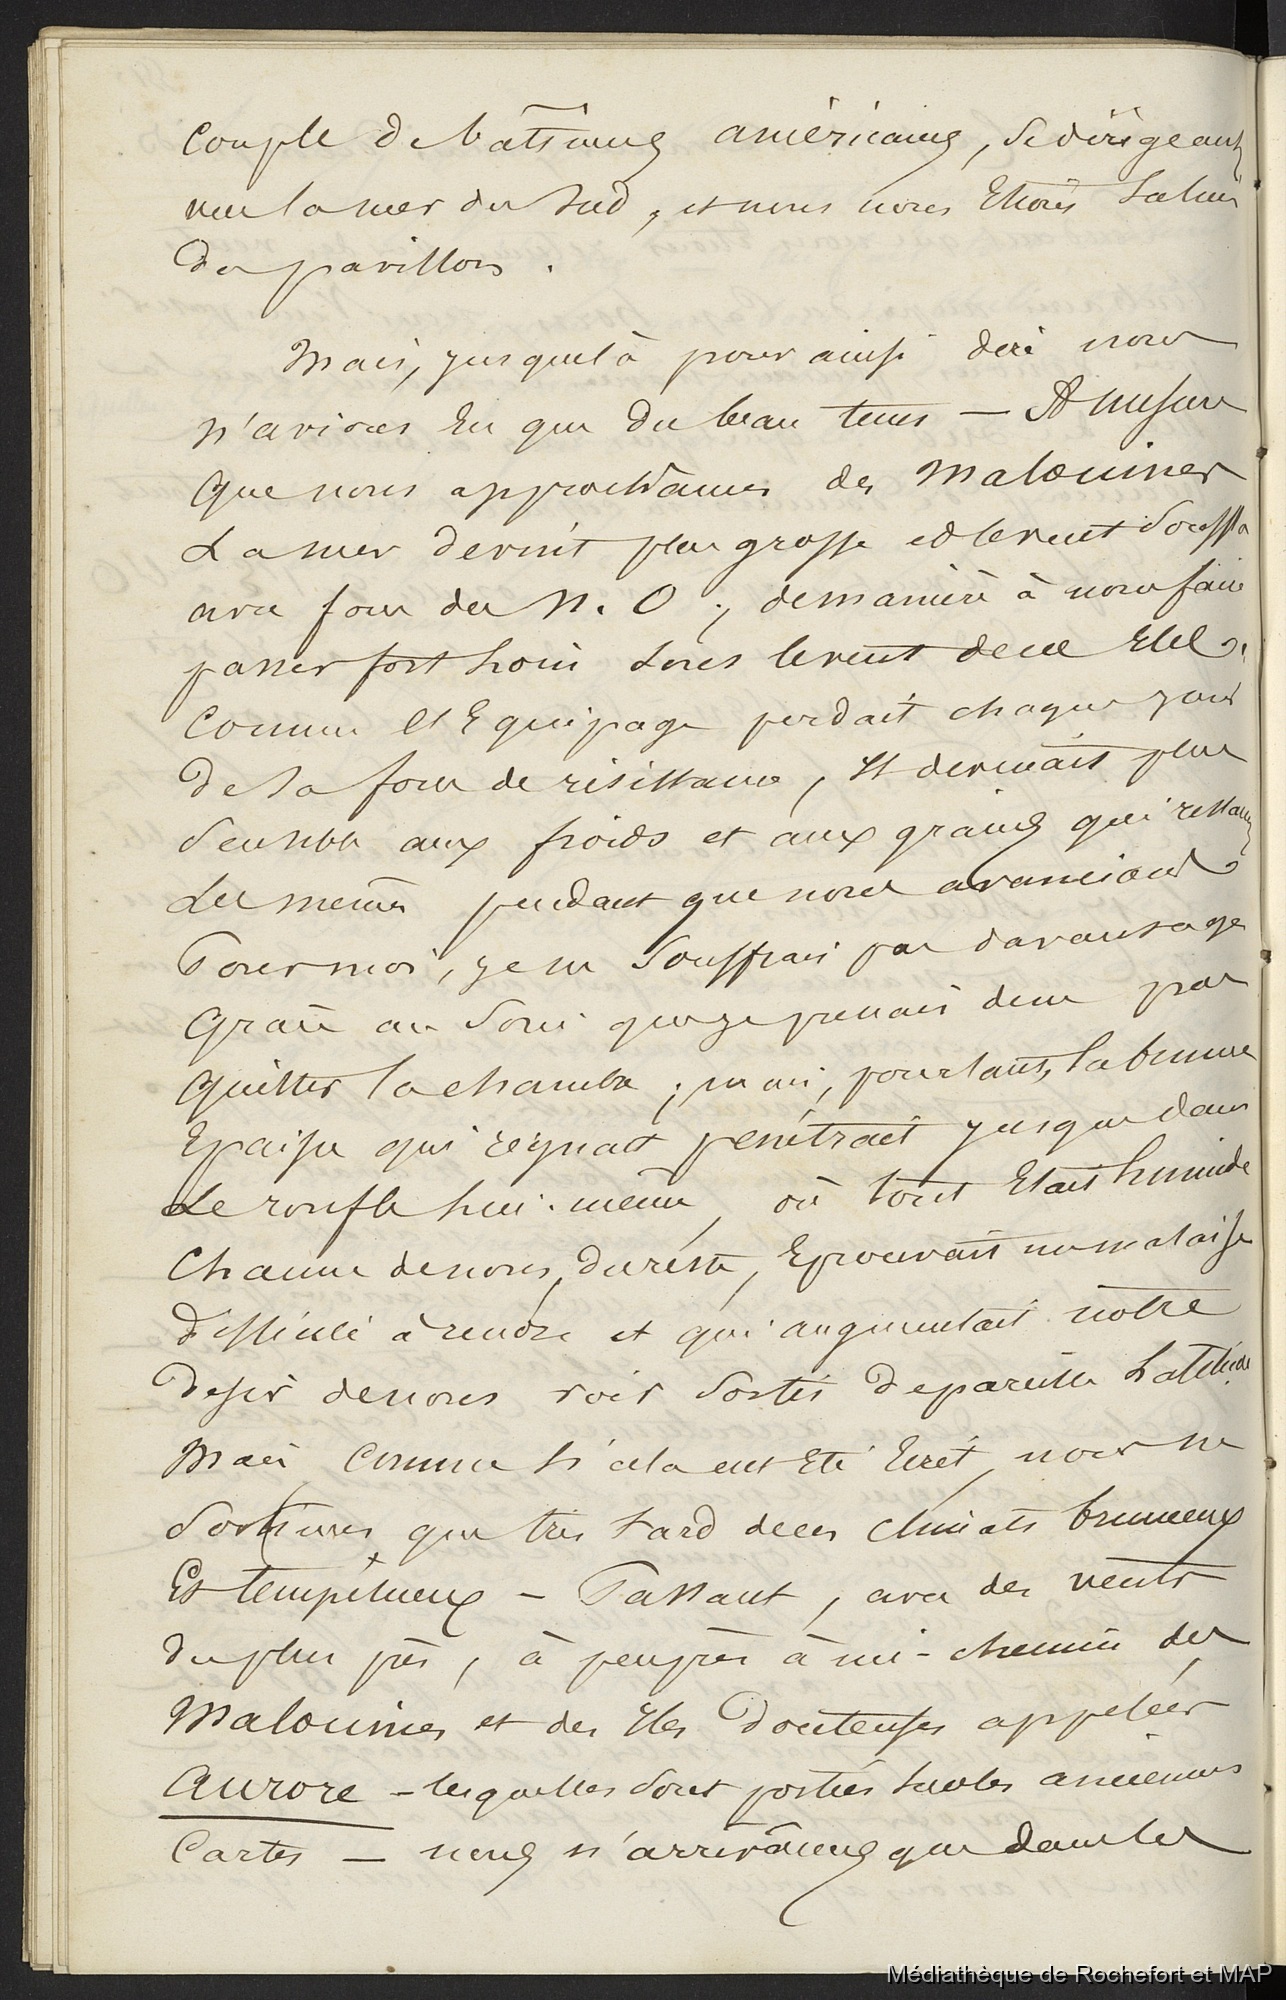 couple de bâtimens américains, se dirigeant
vers la mer du Sud, et nous nous étions salués
du pavillon.
Mais, jusque là pour ainsi dire nous
n'avions eu que du beau tems — A mesure
que nous approchâmes des Malouines
la mer devint plus grosse et le vent souffla
avec force du N. O., de manière à nous faire
passer fort loin sous le vent de ces Iles.
Comme l'Equipage perdait chaque jour
de sa force de résistance, il devenait plus
sensible aux froids et aux grains qui restaient
les mêmes pendant que nous avancions
Pour moi, je ne souffrais pas davantage
grâce au soin que je prenais de ne pas
quitter la chambre; mais, pourtant, la brume
Epaisse qui régnait pénétrait jusque dans
le roufle lui-même, où tout était humide
Chacun de nous, du reste, Eprouvait un malaise
difficile à rendre et qui augmentait notre
desir de nous voir sortis de pareille Latitude.
Mais comme si cela eut été écrit, nous ne
sortimes que très tard de ces climats brumeux
Et tempêtueux — Passant, avec des vents
du plus près, à peu près à mi-chemin des
Malouines et des Iles douteuses appelées
Aurore — lesquelles sont portées sur les anciennes
Cartes — nous n'arrivâmes que dans les
Médiathèque de Rochefort et MAP